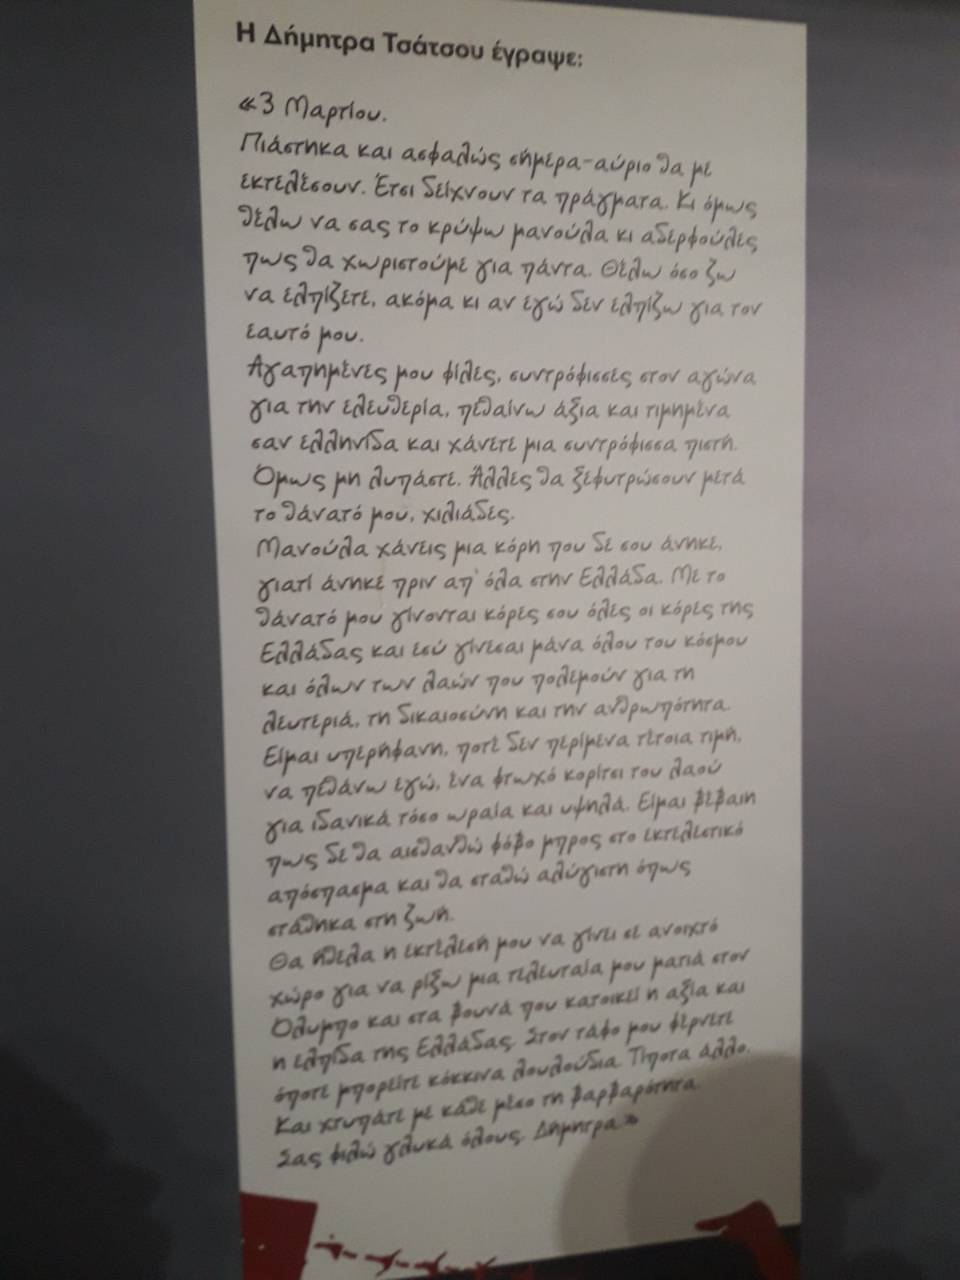 Η Δήμητρα Τσάτσου έγραψε:
«3 Μαρτίου.
Πιάστηκα και ασφαλώς σήμερα-αύριο θα με
εκτελέσουν. Έτσι δείχνουν τα πράγματα. Κι όμως
θέλω να σας το κρύψω μανούλα κι αδερφούλες
πως θα χωριστούμε για πάντα. Θέλω όσο ζω
να ελπίζετε, ακόμα κι αν εγώ δεν ελπίζω για τον
εαυτό μου.
Αγαπημένες μου φίλες, συντρόφισσες στον αγώνα
για την ελευθερία, πεθαίνω άξια και τιμημένα
σαν ελληνίδα και χάνετε μια συντρόφισσα πιστή.
Όμως μη λυπάστε. Άλλες θα ξεφυτρώσουν μετά
το θάνατό μου, χιλιάδες.
Μανούλα χάνεις μια κόρη που δε σου άνηκε,
γιατί άνηκε πριν απ' όλα στην Ελλάδα. Με το
θάνατό μου γίνονται κόρες σου όλες οι κόρες της
Ελλάδας και εσύ γίνεσαι μάνα όλου του κόσμου
και όλων των λαών που πολεμούν για τη
λευτεριά, τη δικαιοσύνη και την ανθρωπότητα.
Είμαι υπερήφανη, ποτέ δεν περίμενα τέτοια τιμή,
να πεθάνω εγώ, ένα φτωχό κορίτσι του λαού
για ιδανικά τόσο ωραία και υψηλά. Είμαι βέβαιη
πως δε θα αισθανθώ φόβο μπρος στο εκτελεστικό
απόσπασμα και θα σταθώ αλύγιστη όπως
στάθηκα στη ζωή.
Θα ήθελα η εκτέλεσή μου να γίνει σε ανοιχτό
χώρο για να ρίξω μια τελευταία μου ματιά στον
Όλυμπο και στα βουνά που κατοικεί η αξία και
η ελπίδα της Ελλάδας. Στον τάφο μου φέρνετε
όποτε μπορείτε κόκκινα λουλούδια. Τίποτα άλλο.
Και χτυπάτε με κάθε μέσο τη βαρβαρότητα.
Σας φιλώ γλυκά όλους. Δήμητρα»